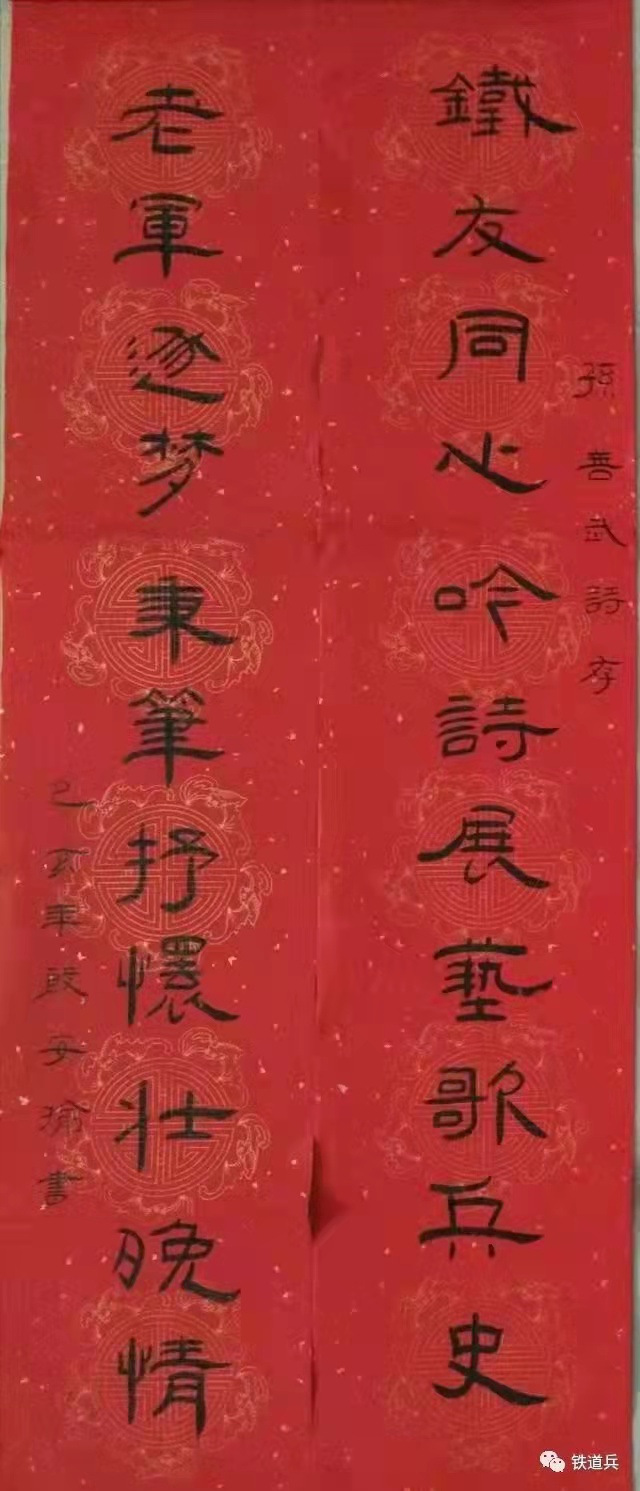 孫善武詩存
鐵友同心吟詩展藝歌兵史
老軍逐梦秉筆抒懷壮晚情
己亥年段安瑜書
铁道兵